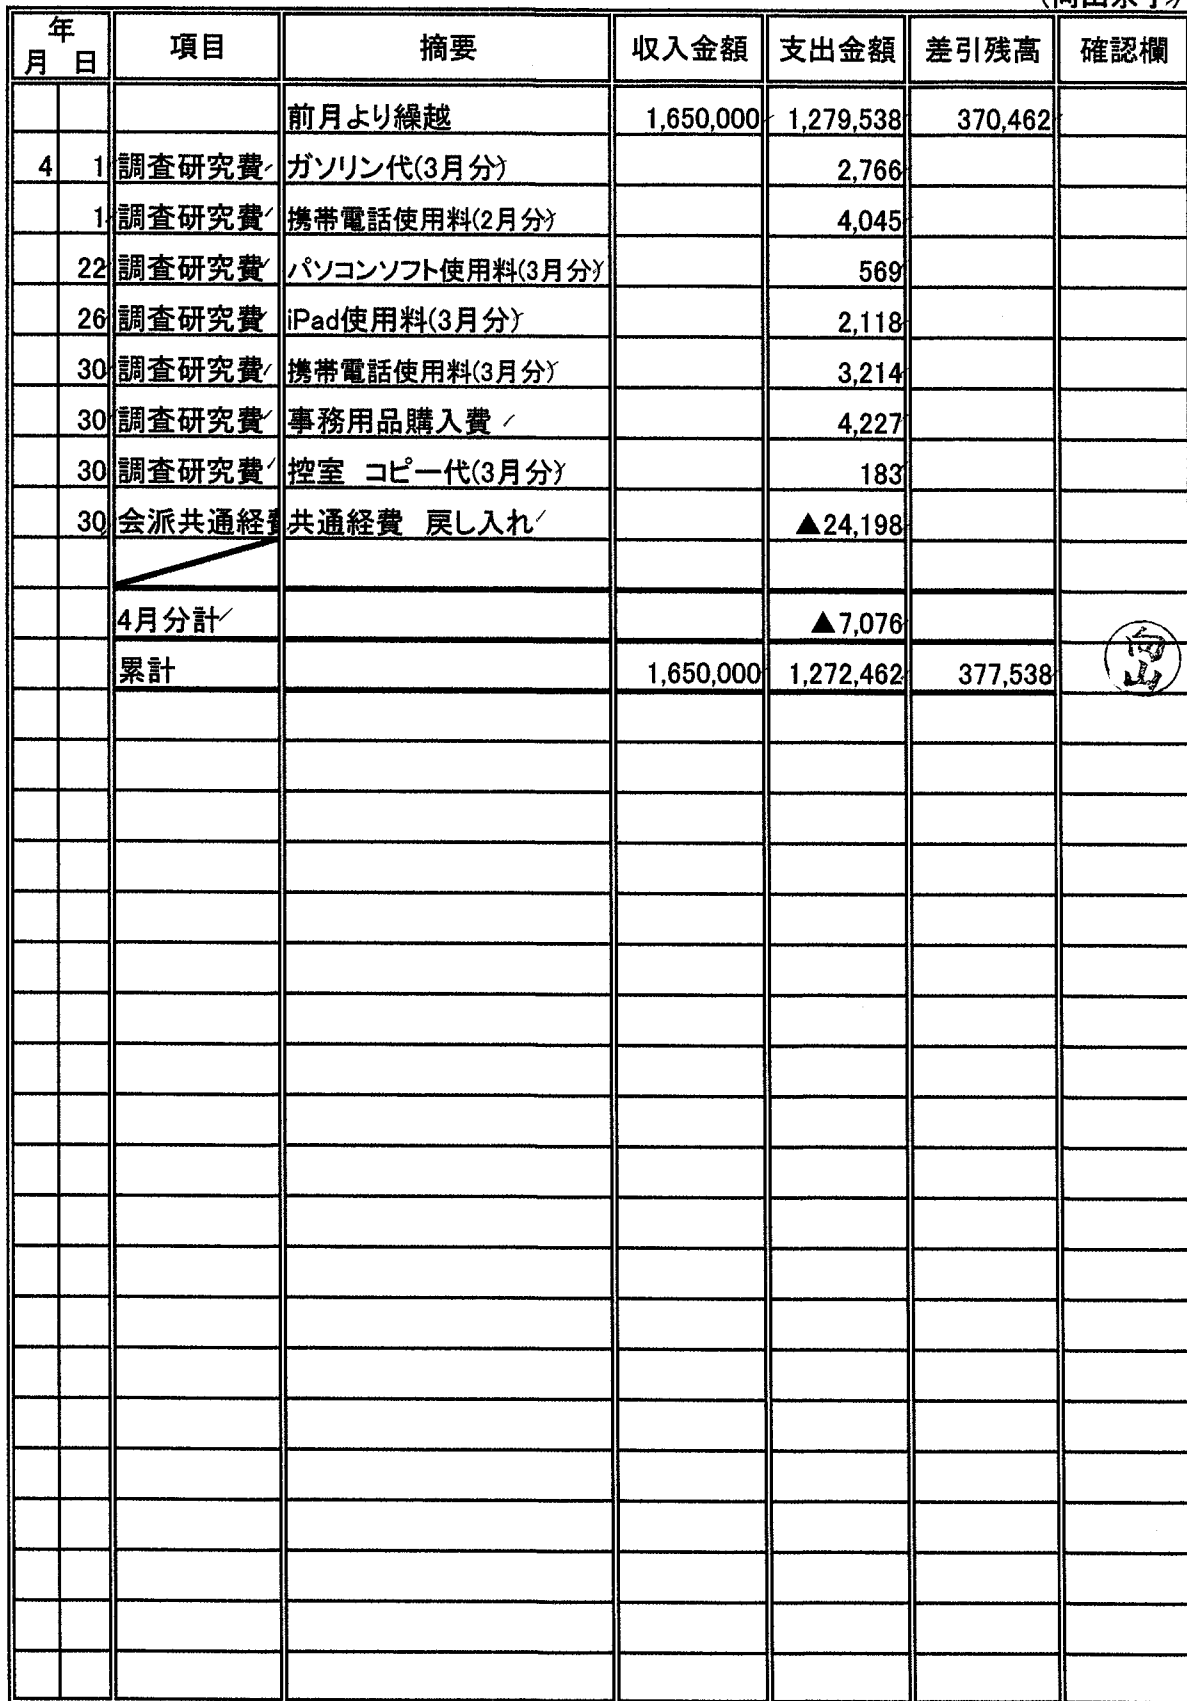 年
月 日 項目 摘要 収入金額 支出金額 差引残高 確認欄
前月より繰越 1,650,000 1,279,538 370,462
4 1 調査研究費 ガソリン代(3月分) 2,766
1 調査研究費 携帯電話使用料(2月分) 4,045
22 調査研究費 パソコンソフト使用料(3月分) 569
26 調査研究費 iPad使用料(3月分) 2,118
30 調査研究費 携帯電話使用料(3月分) 3,214
30 調査研究費 事務用品購入費 4,227
30 調査研究費 控室 コピー代(3月分) 183
30 会派共通経費 共通経費 戻し入れ ▲24,198
4月分計 ▲7,076
累計 1,650,000 1,272,462 377,538
向山